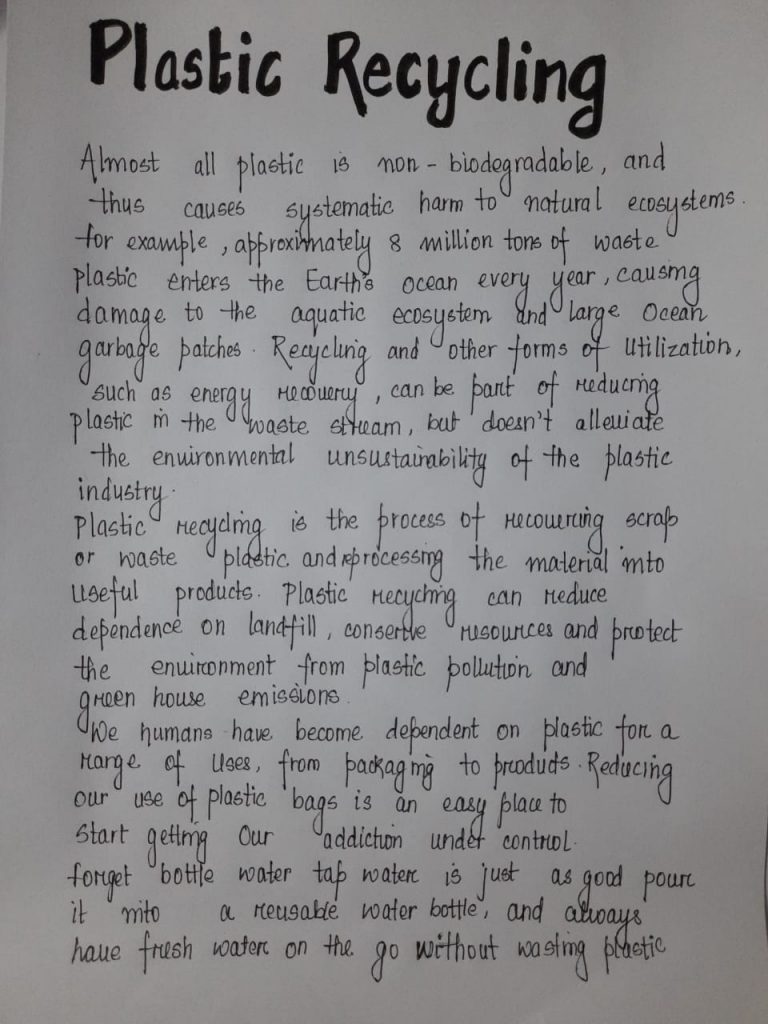 Plastic Recycling
Almost all plastic is non-biodegradable, and
thus causes systematic harm to natural ecosystems.
for example, approximately 8 million tons of waste
plastic enters the Earth's ocean every year, causing
damage to the aquatic ecosystem and large ocean
garbage patches. Recycling and other forms of Utilization,
such as energy recovery, can be part of reducing
plastic in the waste stream, but doesn't alleviate
the environmental unsustainability of the plastic
industry.
Plastic recycling is the process of recovering scrap
or waste plastic and reprocessing the material into
useful products. Plastic recycling can reduce
dependence on landfill, conserve resources and protect
the environment from plastic pollution and
green house emissions.
We humans have become dependent on plastic for a
range of uses, from packaging to products. Reducing
our use of plastic bags is an easy place to
start getting our addiction under control.
forget bottle water tap water is just as good pour
it into a reusable water bottle, and always
have fresh water on the go without wasting plastic